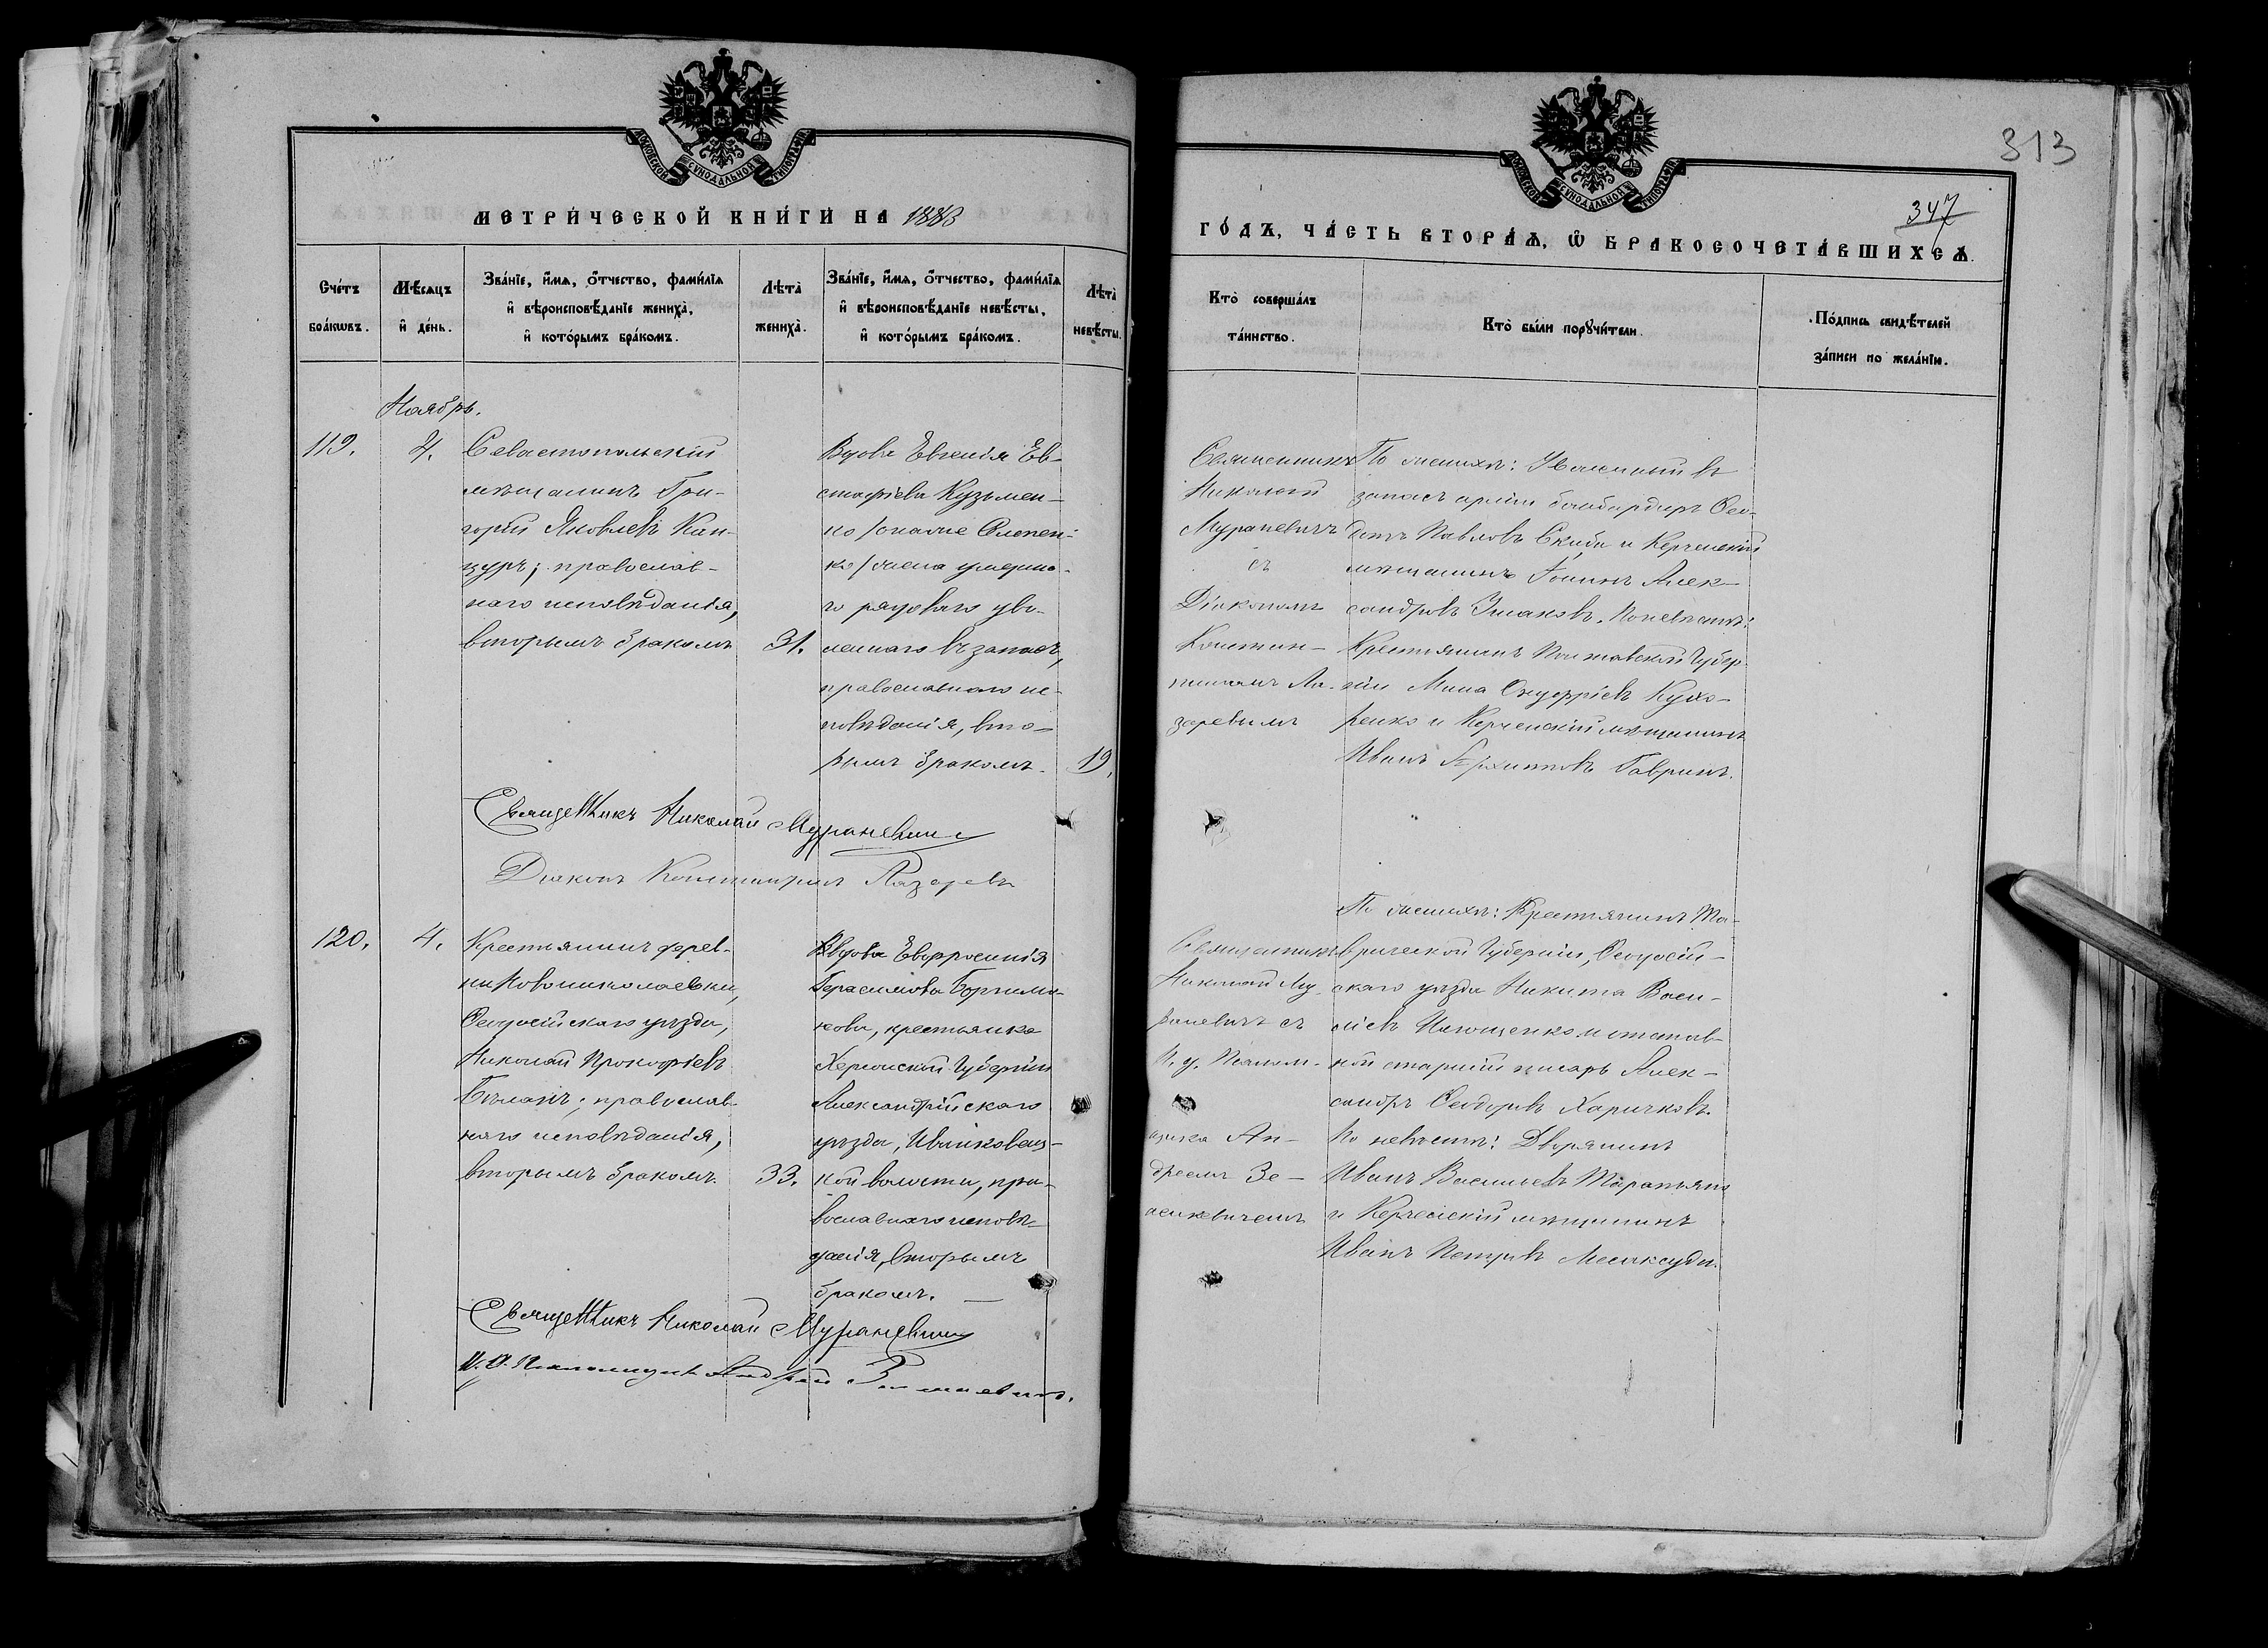 МОСКОВСКОЙ СѴНОДАЛЬНОЙ ТИПОГРАФІИ
МЕТРИ́ЧЕСКОЙ КНИ́ГИ НА 1883
Сче́тъ бра́кωвъ.
Мѣ́сяцъ и҆ де́нь.
Зва́нїе, и҆́мѧ, ѻ҆́тчество, фами́лїѧ
и҆ вѣроисповѣ́данїе жениха̀,
и҆ кото́рымъ бра́комъ.
Лѣ́та̀ жениха̀.
Зва́нїе, и҆́мѧ, ѻ҆́тчество, фами́лїѧ
и҆ вѣроисповѣ́данїе невѣ́сты,
и҆ кото́рымъ бра́комъ.
Лѣ́та̀ невѣ́сты.
Ноябрь.
119.
4.
Севастопольскій
мѣщанинъ Гри-
горій Яковлевъ Кан-
цуръ; православ-
наго исповѣданія,
вторымъ бракомъ
31.
Вдова Евгенія Ев-
стафіева Кузьмен-
ко
ко / жена умерша-
го рядоваго уво-
леннаго въ запасъ,
православнаго ис-
повѣданія, вто-
рымъ бракомъ.
19.
Священникъ Николай Мураневичъ
Діаконъ Константинъ Лазаревъ
120.
4.
Крестьянинъ дерев-
ни Новониколаевки,
Ѳеодосійскаго уѣзда,
Николай Прокофіевъ
Бѣланъ; православ-
наго исповѣданія,
вторымъ бракомъ.
33.
Вдова Евфросинія
Герасимова
крестьянка
Херсонской Губерніи
Александрійскаго
уѣзда, Ивашковец-
кой волости, пра-
вославнаго исповѣ-
данія, вторымъ
бракомъ.
Священникъ Николай Мураневичъ
И. д. Псаломщика Андрей
313
347
МОСКОВСКОЙ СѴНОДАЛЬНОЙ ТИПОГРАФІИ
ГО́ДЪ, ЧА́СТЬ ВТОРА́Ѧ, Ѡ҆ БРАКОСОЧЕТА́ВШИХСѦ.
Кто̀ соверша́лъ та́инство.
Кто̀ бы́ли порꙋчи́тели.
По́дпись свидѣ́телей за́писи по жела́нїю.
Священникъ
Николай
Мураневичъ
съ
Діакономъ
Констан-
тиномъ Ла-
заревымъ
По женихѣ: Уволенный въ
запасъ арміи бомбардиръ Ѳео-
дотъ Павловъ Скиба и Керченскій
мѣщанинъ Іоаннъ Алек-
сандровъ По невѣстѣ:
Крестьянинъ Полтавской Губер-
ніи Мина Онуфріевъ Кухо-
ренко и Керченскій мѣщанинъ
Иванъ Гавринъ.
Священникъ
Николай Му-
раневичъ съ
И. д. Псалом-
щика Ан-
дреемъ Зе-
По женихѣ: Крестьянинъ Та-
врической Губерніи, Ѳеодосій-
скаго уѣзда Никита Васи-
ліевъ и отстав-
ной старшій писарь Алек-
сандръ Ѳеодоровъ Харичковъ.
По невѣстѣ: Дворянинъ
Иванъ Васильевъ
и Керченскій мѣщанинъ
Иванъ Петровъ Месаксуди.